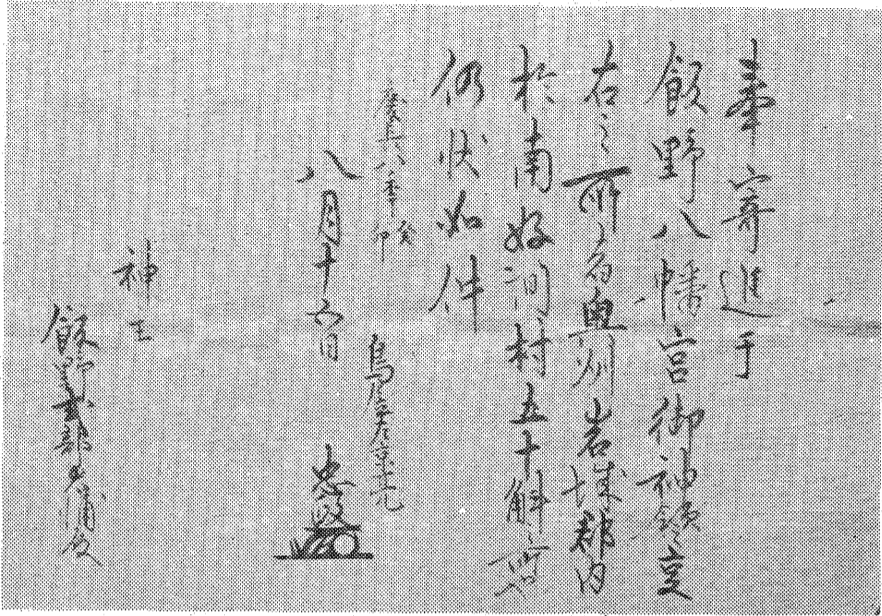 奉寄進于
飯野八幡宮御神領之㕝
右之所者奥州岩城郡内
於南好間村五十斛
仍状如件
慶長八年癸卯
八月十六日
鳥居左京亮
忠政
神主
飯野式部大輔殿